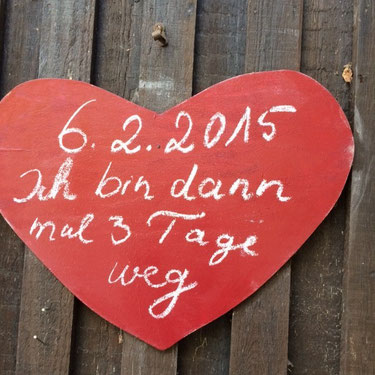 6.2.2015
Ich bin dann
mal 3 Tage
weg